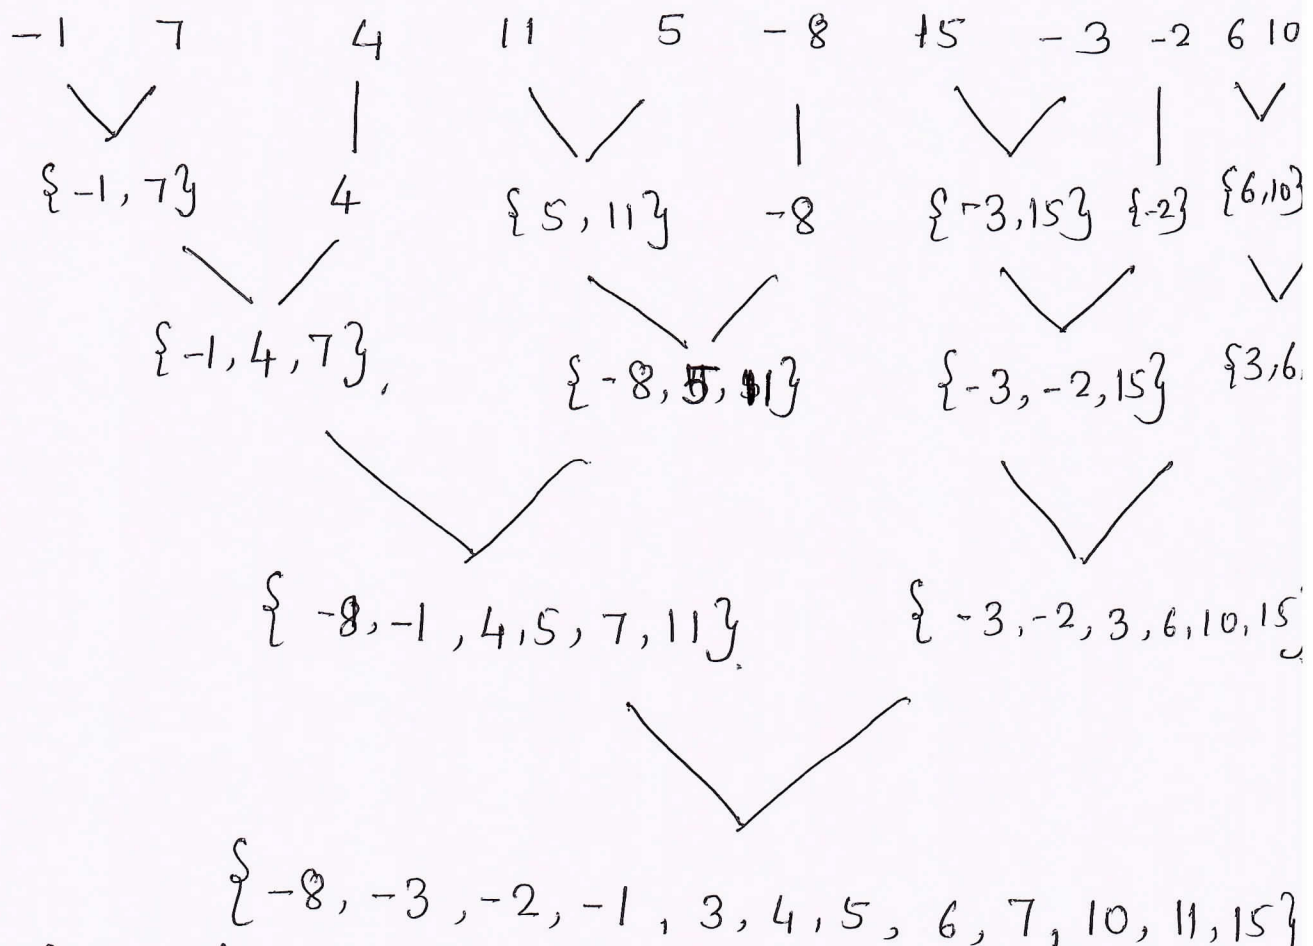 -1 7 4 11 5 -8 15 -3 -2 6 10
{-1, 7} 4 {5, 11} -8 {-3, 15} {-2} {6, 10}
{-1, 4, 7}, {-8, 5, 11} {-3, -2, 15} {3, 6,
{-8, -1, 4, 5, 7, 11} {-3, -2, 3, 6, 10, 15}
{-8, -3, -2, -1, 3, 4, 5, 6, 7, 10, 11, 15}